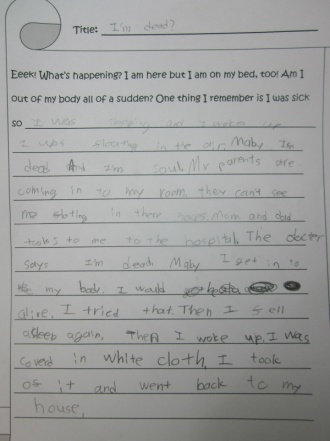 Title: I'm dead?
Eeek! What's happening? I am here but I am on my bed, too! Am I
out of my body all of a sudden? One thing I remember is I was sick
so I was and I woke up
I was floating in the air. Maby I'm
dead. And I'm soul. My parents are
coming in to my room. they can't see
me in there Mom and dad
to me to the hospital. The docter
says I'm dead. Maby I get in to
my body. I would
alive. I tried that. Then I fell
asleep again. Then I woke up. I was
coverd in white cloth. I took
of it and went back to my
house.